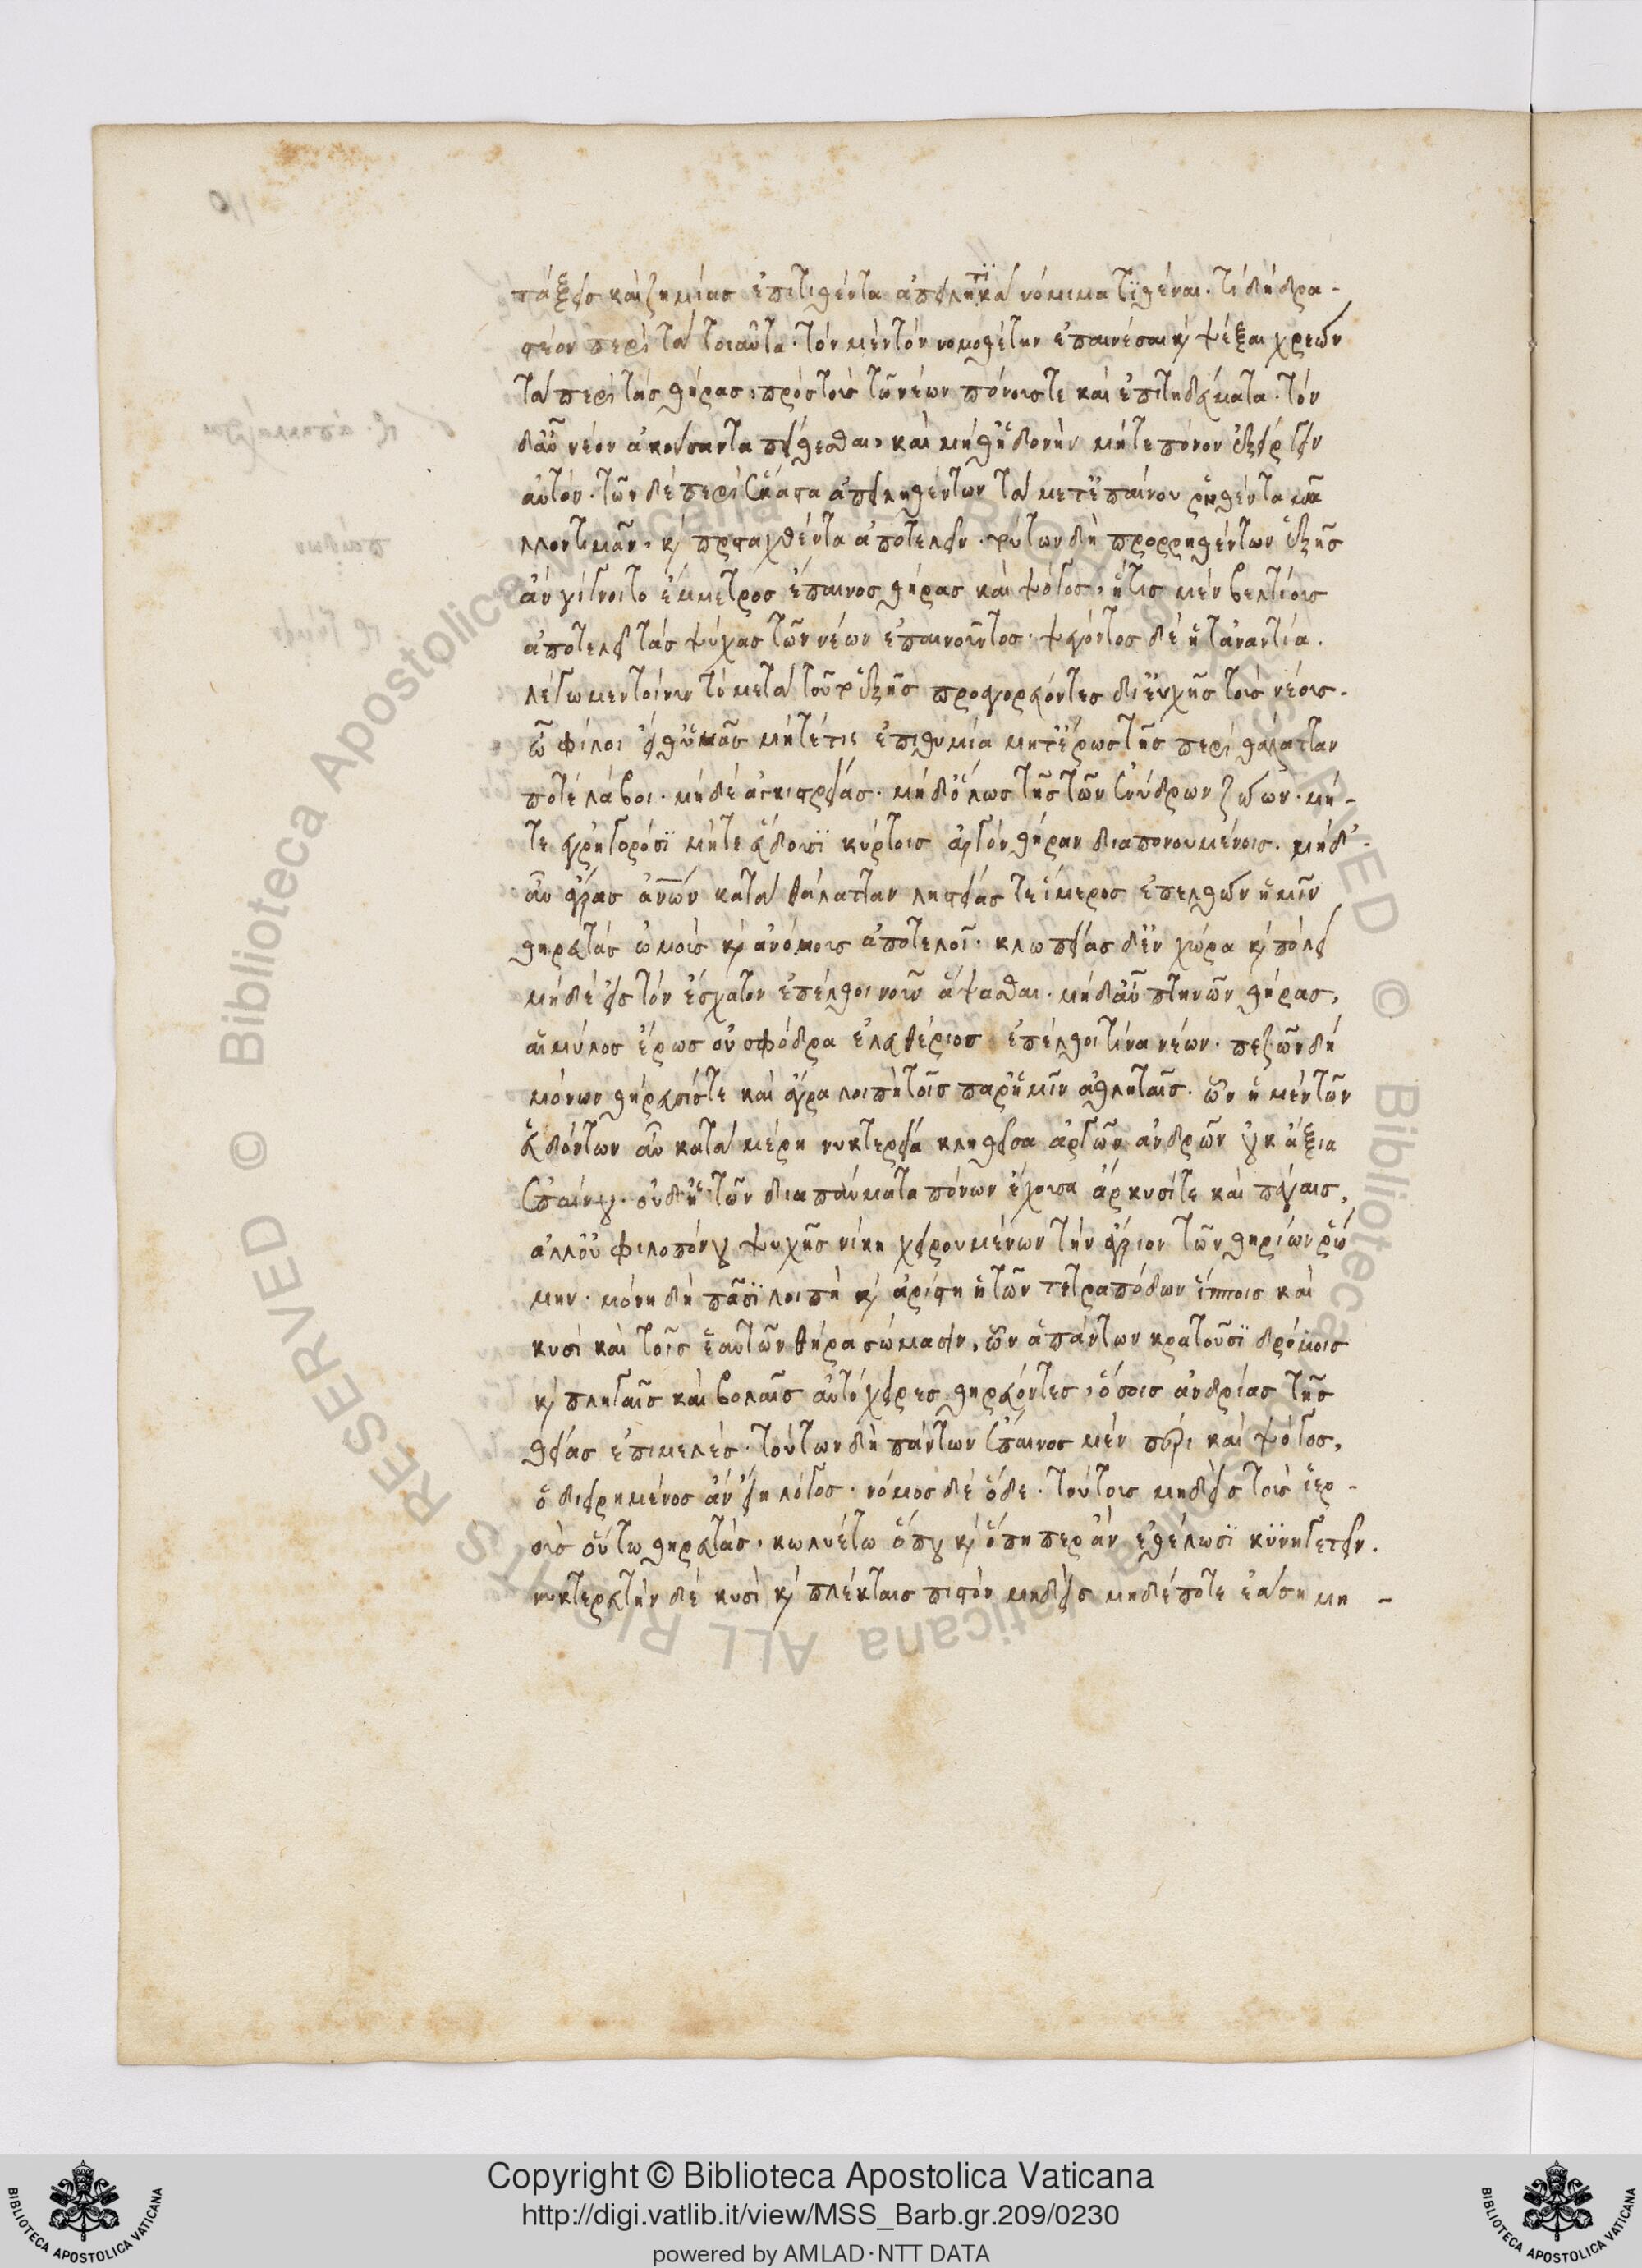 τάξεις καὶ ζημίας ἐπιτιθέντα ἀπειλητικὰ νόμιμα τϊθέναι. τί δὴ δρα-
στέον περὶ τὰ τοιαῦτα. τὸν μὲν τὸν νομοθέτην ἐπαινέσαι κ ψέξαι χρεὼν
τὰ περὶ τὰς θήρας, πρὸς τοὺς τῶν νέων πόνους τε καὶ ἐπιτηδεύματα. τὸν
δ' αὖ νέον ἀκούσαντα πείθεσθαι, καὶ μήθ' ἡδονὴν μήτε πόνον ἐξείργειν
αὐτόν. τῶν δὲ περὶ ἕκαστα ἀπειληθέντων τὰ μετ' ἐπαίνου ῥηθέντα μᾶ
λλον τιμᾶν, κ προσταχθέντα ἀποτελεῖν. τούτων δὴ προρρηθέντων ἑξῆς
ἂν γίγνοιτο ἔμμετρος ἔπαινος θήρας καὶ ψόγος, ἥτις μὲν βελτίους
ἀποτελεῖ τὰς ψυχὰς τῶν νέων ἐπαινοῦντος. ψέγοντος δὲ ἣ τἀναντία.
λέγωμεν τοίνυν τὸ μετὰ τοῦτο ἑξῆς προσαγορεύοντες δι' εὐχῆς τοὺς νέους.
ὦ φίλοι εἴθ' ὑμᾶς μήτέ τις ἐπιθυμία μήτ' ἔρως τῆς περὶ θάλατταν
ποτὲ λάβοι. μηδὲ ἀγκιστρείας. μηδ' ὅλως τῆς τῶν ἐνύδρων ζώων. μή-
τε ἐγρηγορόσϊ μήτε εὕδουσϊ κύρτοις ἀργὸν θήραν διαπονουμένοις. μηδ'
αὖ ἄγρας ἀνῶν κατὰ θάλατταν ληστείας τε ἵμερος ἐπελθὼν ἡμῖν
θηρευτὰς ὠμοὺς κ ἀνόμους ἀποτελοῖ. κλωπείας δ' ἐν χώρα κ πόλει
μηδὲ εἰς τὸν ἔσχατον ἐπέλθοι νοῦν ἅψασθαι. μηδ' αὖ πτηνῶν θήρας,
αἱμύλος ἔρως οὐ σφόδρα ἐλευθέριος ἐπέλθοι τίνα νέων. πεζῶν δὴ
μόνων θήρευσίς τε καὶ ἄγρα λοιπὴ τοῖς παρ' ἡμῖν ἀθληταῖς. ὧν ἡ μὲν τῶν
εὑδόντων αὖ κατὰ μέρη νυκτερεία κληθεῖσα ἀργῶν ἀνδρῶν οὐκ ἀξία
ἐπαίνου. οὐδ' ἡ τῶν διαπαύματα πόνων ἔχουσα ἄρκυσί τε καὶ πάγαις,
ἀλλ' οὐ φιλοπόνου ψυχῆς νίκη χειρουμένων τὴν ἄγριον τῶν θηρίων ῥώ
μην. μόνη δὴ πᾶσϊ λοιπὴ κ ἀρίστη ἡ τῶν τετραπόδων ἵπποις καὶ
κυσὶ καὶ τοῖς ἑαυτῶν θήρα σώμασιν, ὧν ἁπάντων κρατοῦσϊ δρόμοις
κ πληγαῖς καὶ βολαῖς αὐτόχειρες θηρεύοντες, ὅσοις ἀνδρίας τῆς
θείας ἐπιμελές. τούτων δὴ πάντων ἔπαινος μὲν πέρι καὶ ψόγος,
ὁ διειρημένος ἂν εἴη λόγος. νόμος δὲ ὅδε. τούτους μηδεὶς τοὺς ἱερ-
οὺς οὕτω θηρευτὰς, κωλυέτω ὅπου κ ὅπη περ ἂν ἐθέλωσϊ κυνηγετεῖν.
νυκτερευτὴν δὲ κυσὶ κ πλέκταις πιστὸν μηδεὶς μηδέποτε ἐάση μη -
Copyright © Biblioteca Apostolica Vaticana
http://digi.vatlib.it/view/MSS_Barb.gr.209/0230
powered by AMLAD·NTT DATA
© Biblioteca Apostolica Vaticana ALL RIGHTS RESERVED
BIBLIOTECA APOSTOLICA VATICANA
BIBLIOTECA APOSTOLICA VATICANA